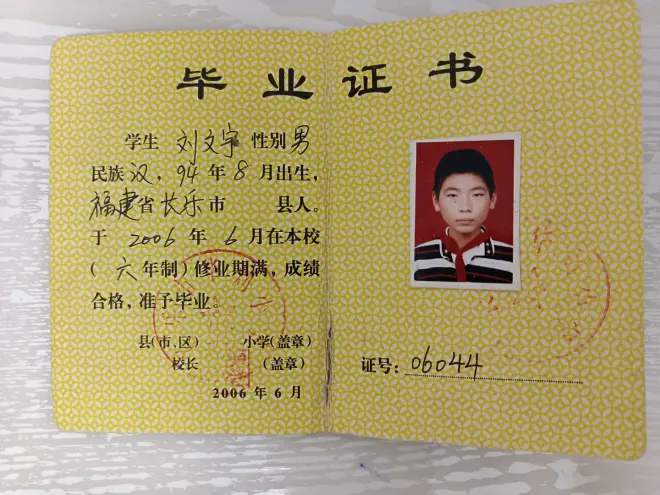 毕业证书
学生 刘文宇 性别 男
民族 汉, 94 年 8 月出生,
福建省长乐市 县人。
于 2006 年 6 月在本校
(六年制)修业期满,成绩
合格,准予毕业。
县(市、区) 小学(盖章)
校长 (盖章)
2006 年 6 月
证号: 06044